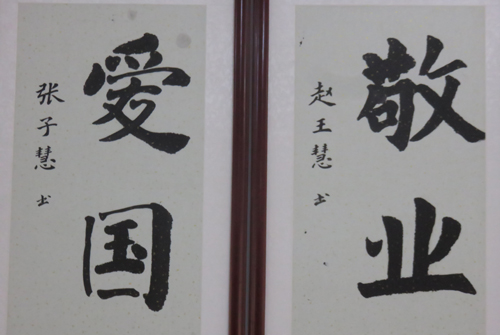 爱国
张子慧 书
敬业
赵王慧 书